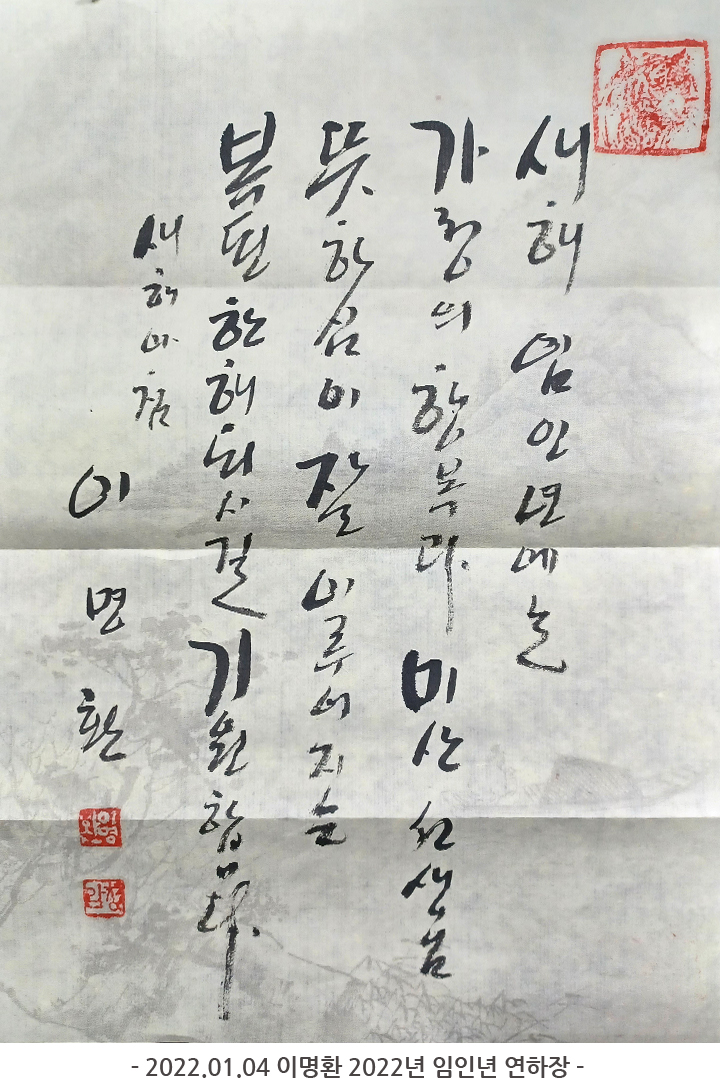 새해 임인년에는
가정의 행복과 미산 선생님
뜻하심이 잘 이루어지는
복된 한해 되시길 기원합니다.
새해아침
이명환
- 2022.01.04 이명환 2022년 임인년 연하장 -